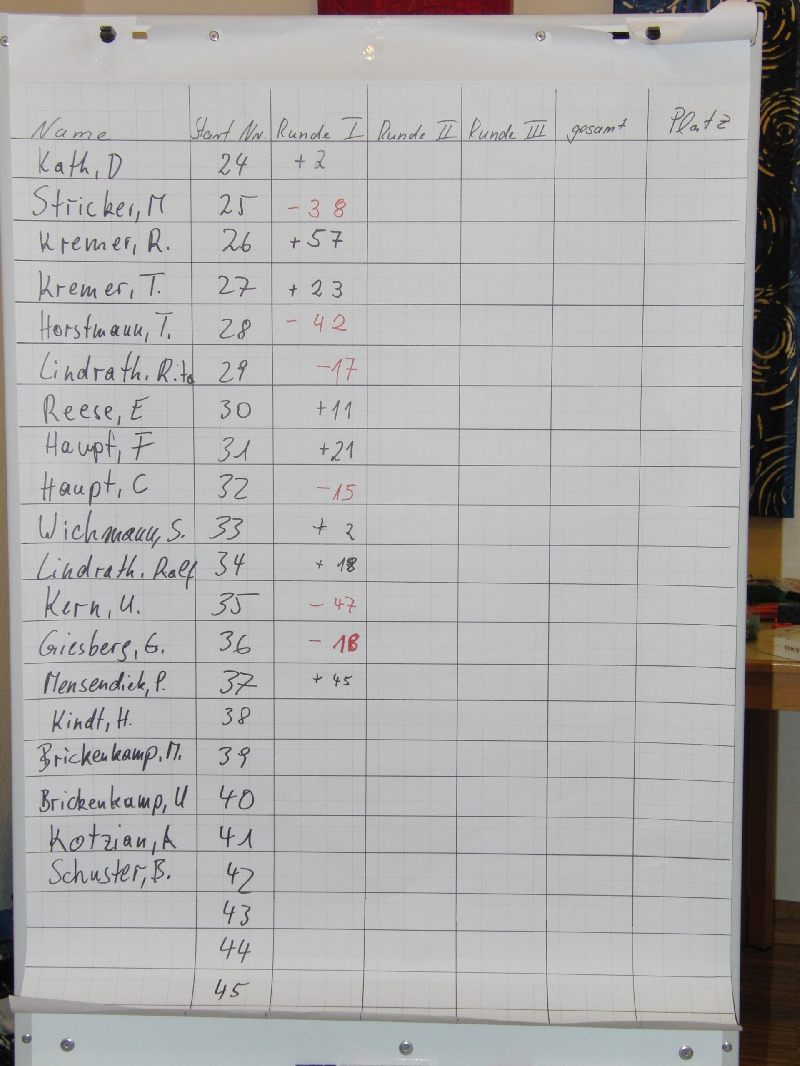 Name Start Nr. Runde I Runde II Runde III gesamt Platz
Kath, D 24 + 2
Stricker, M 25 - 38
Kremer, R. 26 + 57
Kremer, T. 27 + 23
Horstmann, T. 28 - 42
Lindrath. Rita 29 - 17
Reese, E 30 + 11
Haupt, F 31 + 21
Haupt, C 32 - 15
Wichmann, S. 33 + 2
Lindrath. Ralf 34 + 18
Kern, U. 35 - 47
Giesberg, G. 36 - 18
Mensendiek, P. 37 + 45
Kindt, H. 38
Brickenkamp, M. 39
Brickenkamp, U 40
Kotzian, A 41
Schuster, B. 42
43
44
45